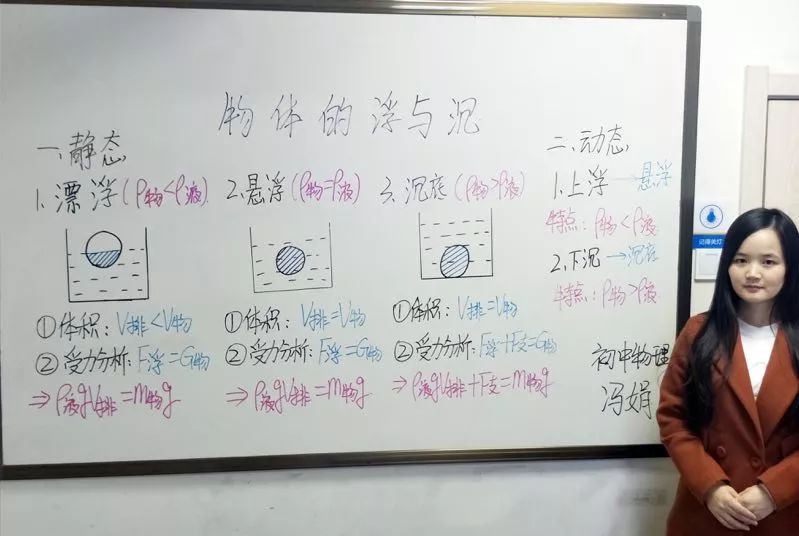 物体的浮与沉
一、静态
1.漂浮(ρ物<ρ液)
①体积：V排<V物
②受力分析：F浮=G物
⇒ρ液gV排=m物g
2.悬浮(ρ物=ρ液)
①体积：V排=V物
②受力分析：F浮=G物
⇒ρ液gV排=m物g
3.沉底(ρ物>ρ液)
①体积：V排=V物
②受力分析：F浮+F支=G物
⇒ρ液gV排+F支=m物g
二、动态
1.上浮→悬浮
特点：ρ物<ρ液
2.下沉→沉底
特点：ρ物>ρ液
初中物理
冯娟
记得关灯